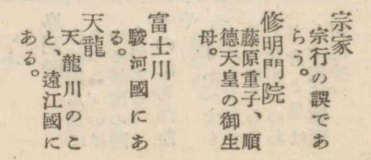 宗家
宗行の誤であ
らう。
修明門院
藤原重子、順
德天皇の御生
母。
富士川
駿河國にあ
る。
天龍
天龍川のこ
と、遠江國に
ある。